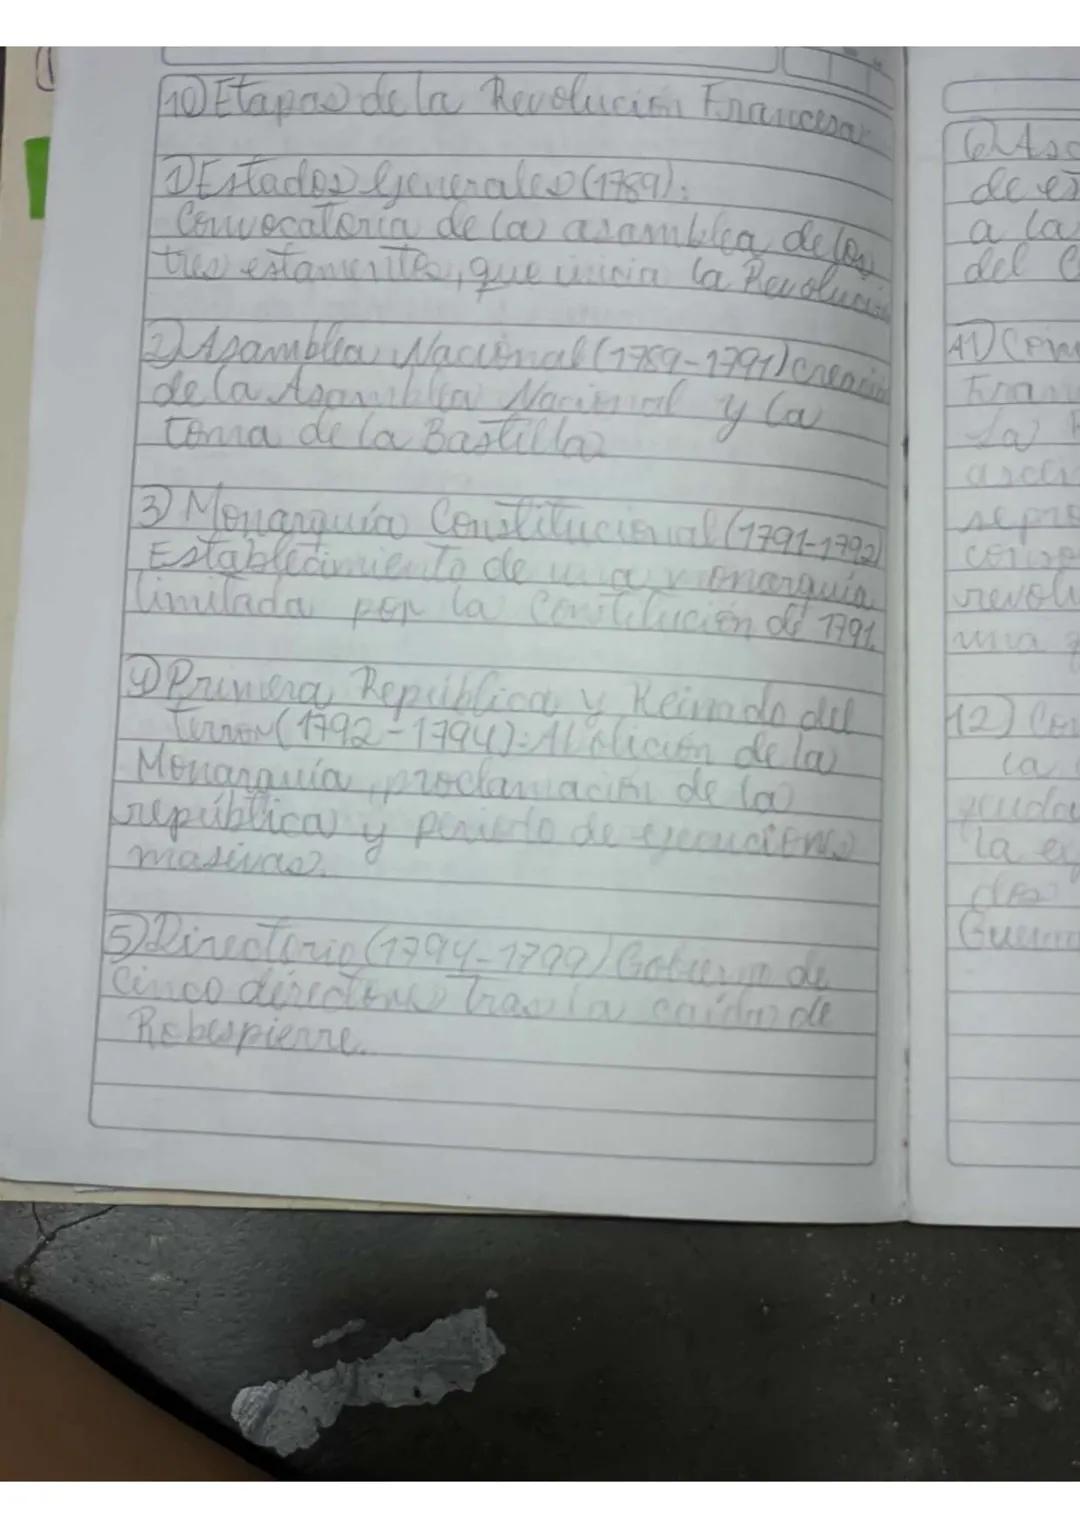 10) Etapas de la Revolución Francesa
1) Estados Generales (1789):
Convocatoria de la asamblea de los
tres estamentos, que inicia la Revolución
2) Asamblea Nacional (1789-1791) creación
de la Asamblea Nacional y la
toma de la Bastilla
3) Monarquía Constitucional (1791-1792)
Establecimiento de una monarquía
limitada por la Constitución de 1791.
4) Primera República y Reinado del
Terror (1792-1794): Abolición de la
Monarquía, proclamación de la
república y periodo de ejecuciones
masivas.
5) Directorio (1794-1799) Gobierno de
Cinco directores tras la caída de
Robespierre.
6) 
de
a la
del
11)
La
revolu
una
12)
la
la